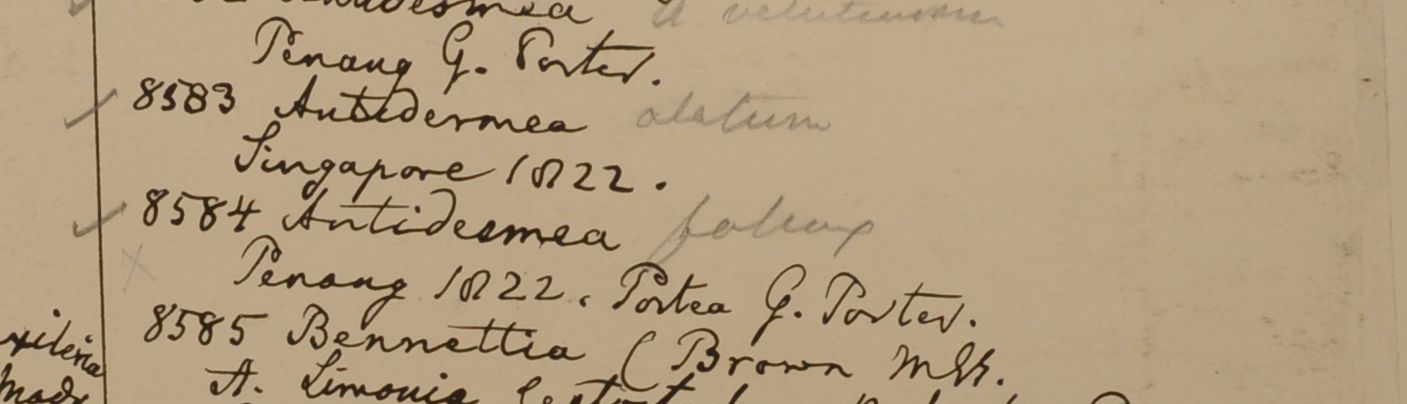 Antidesmea A velutinosum
Penang G. Porter.
8583 Antidesmea alatum
Singapore 1822.
8584 Antidesmea
Penang 1822. Portea G. Porter.
8585 Bennettia (Brown Mss.
A. Limonia